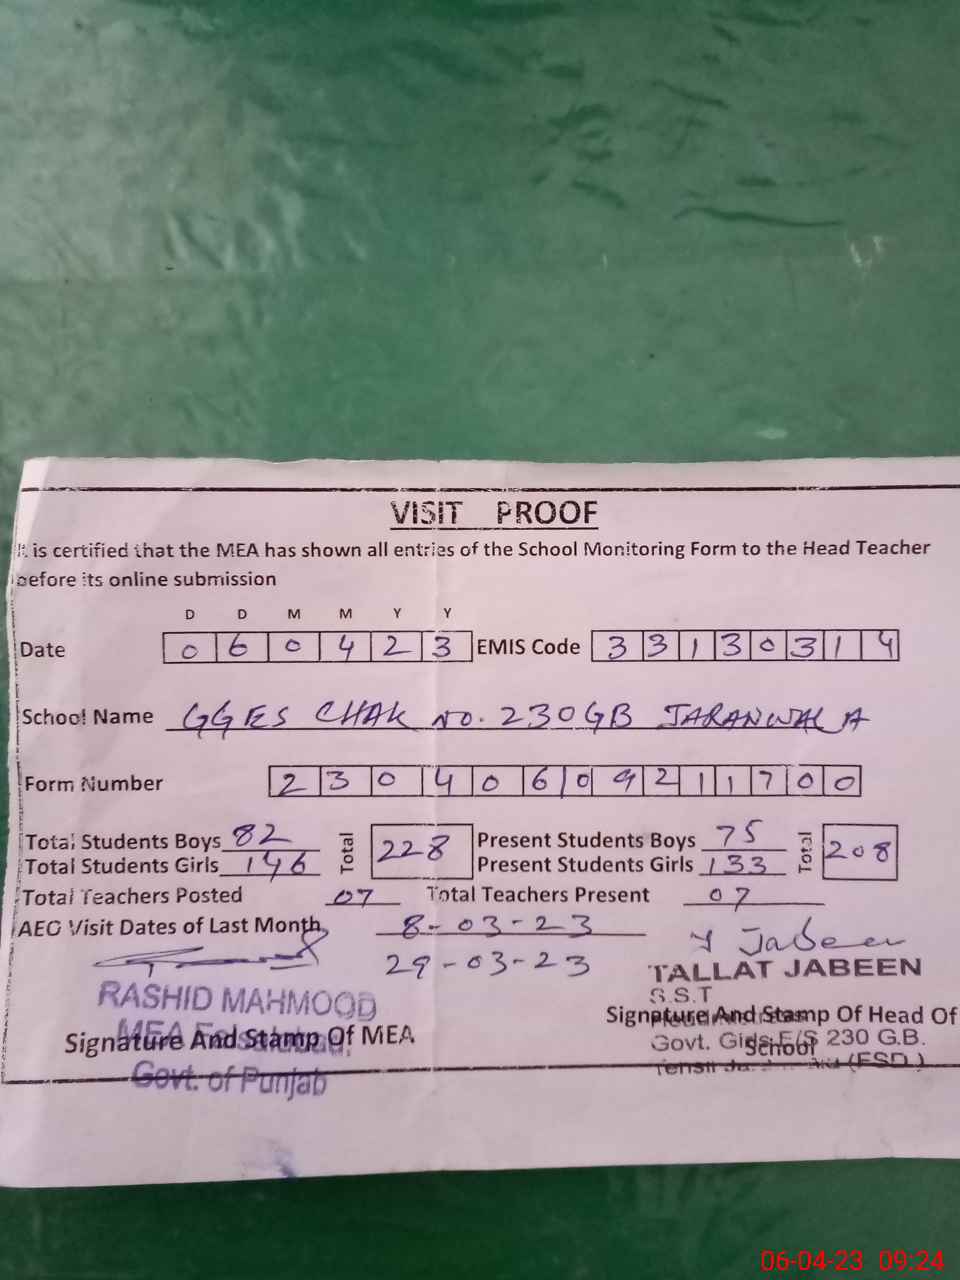 VISIT PROOF
It is certified that the MEA has shown all entries of the School Monitoring Form to the Head Teacher
before its online submission
D D M M Y Y
Date 0 6 0 4 2 3 EMIS Code 3 3 1 3 0 3 1 4
School Name GGES CHAK NO. 230GB JARANWALA
Form Number 2 3 0 4 0 6 0 9 2 1 1 7 0 0
Total Students Boys 82 Total 228 Present Students Boys 75 Total 208
Total Students Girls 146 Present Students Girls 133
Total Teachers Posted 07 Total Teachers Present 07
AEO Visit Dates of Last Month 8-03-23
29-03-23
Jabeen
TALLAT JABEEN
S.S.T
RASHID MAHMOOD
MEA Faisalabad,
Govt. of Punjab
Signature And Stamp Of MEA
Signature And Stamp Of Head Of
School
Govt. Girls E/S 230 G.B.
(FSD.)
06-04-23 09:24